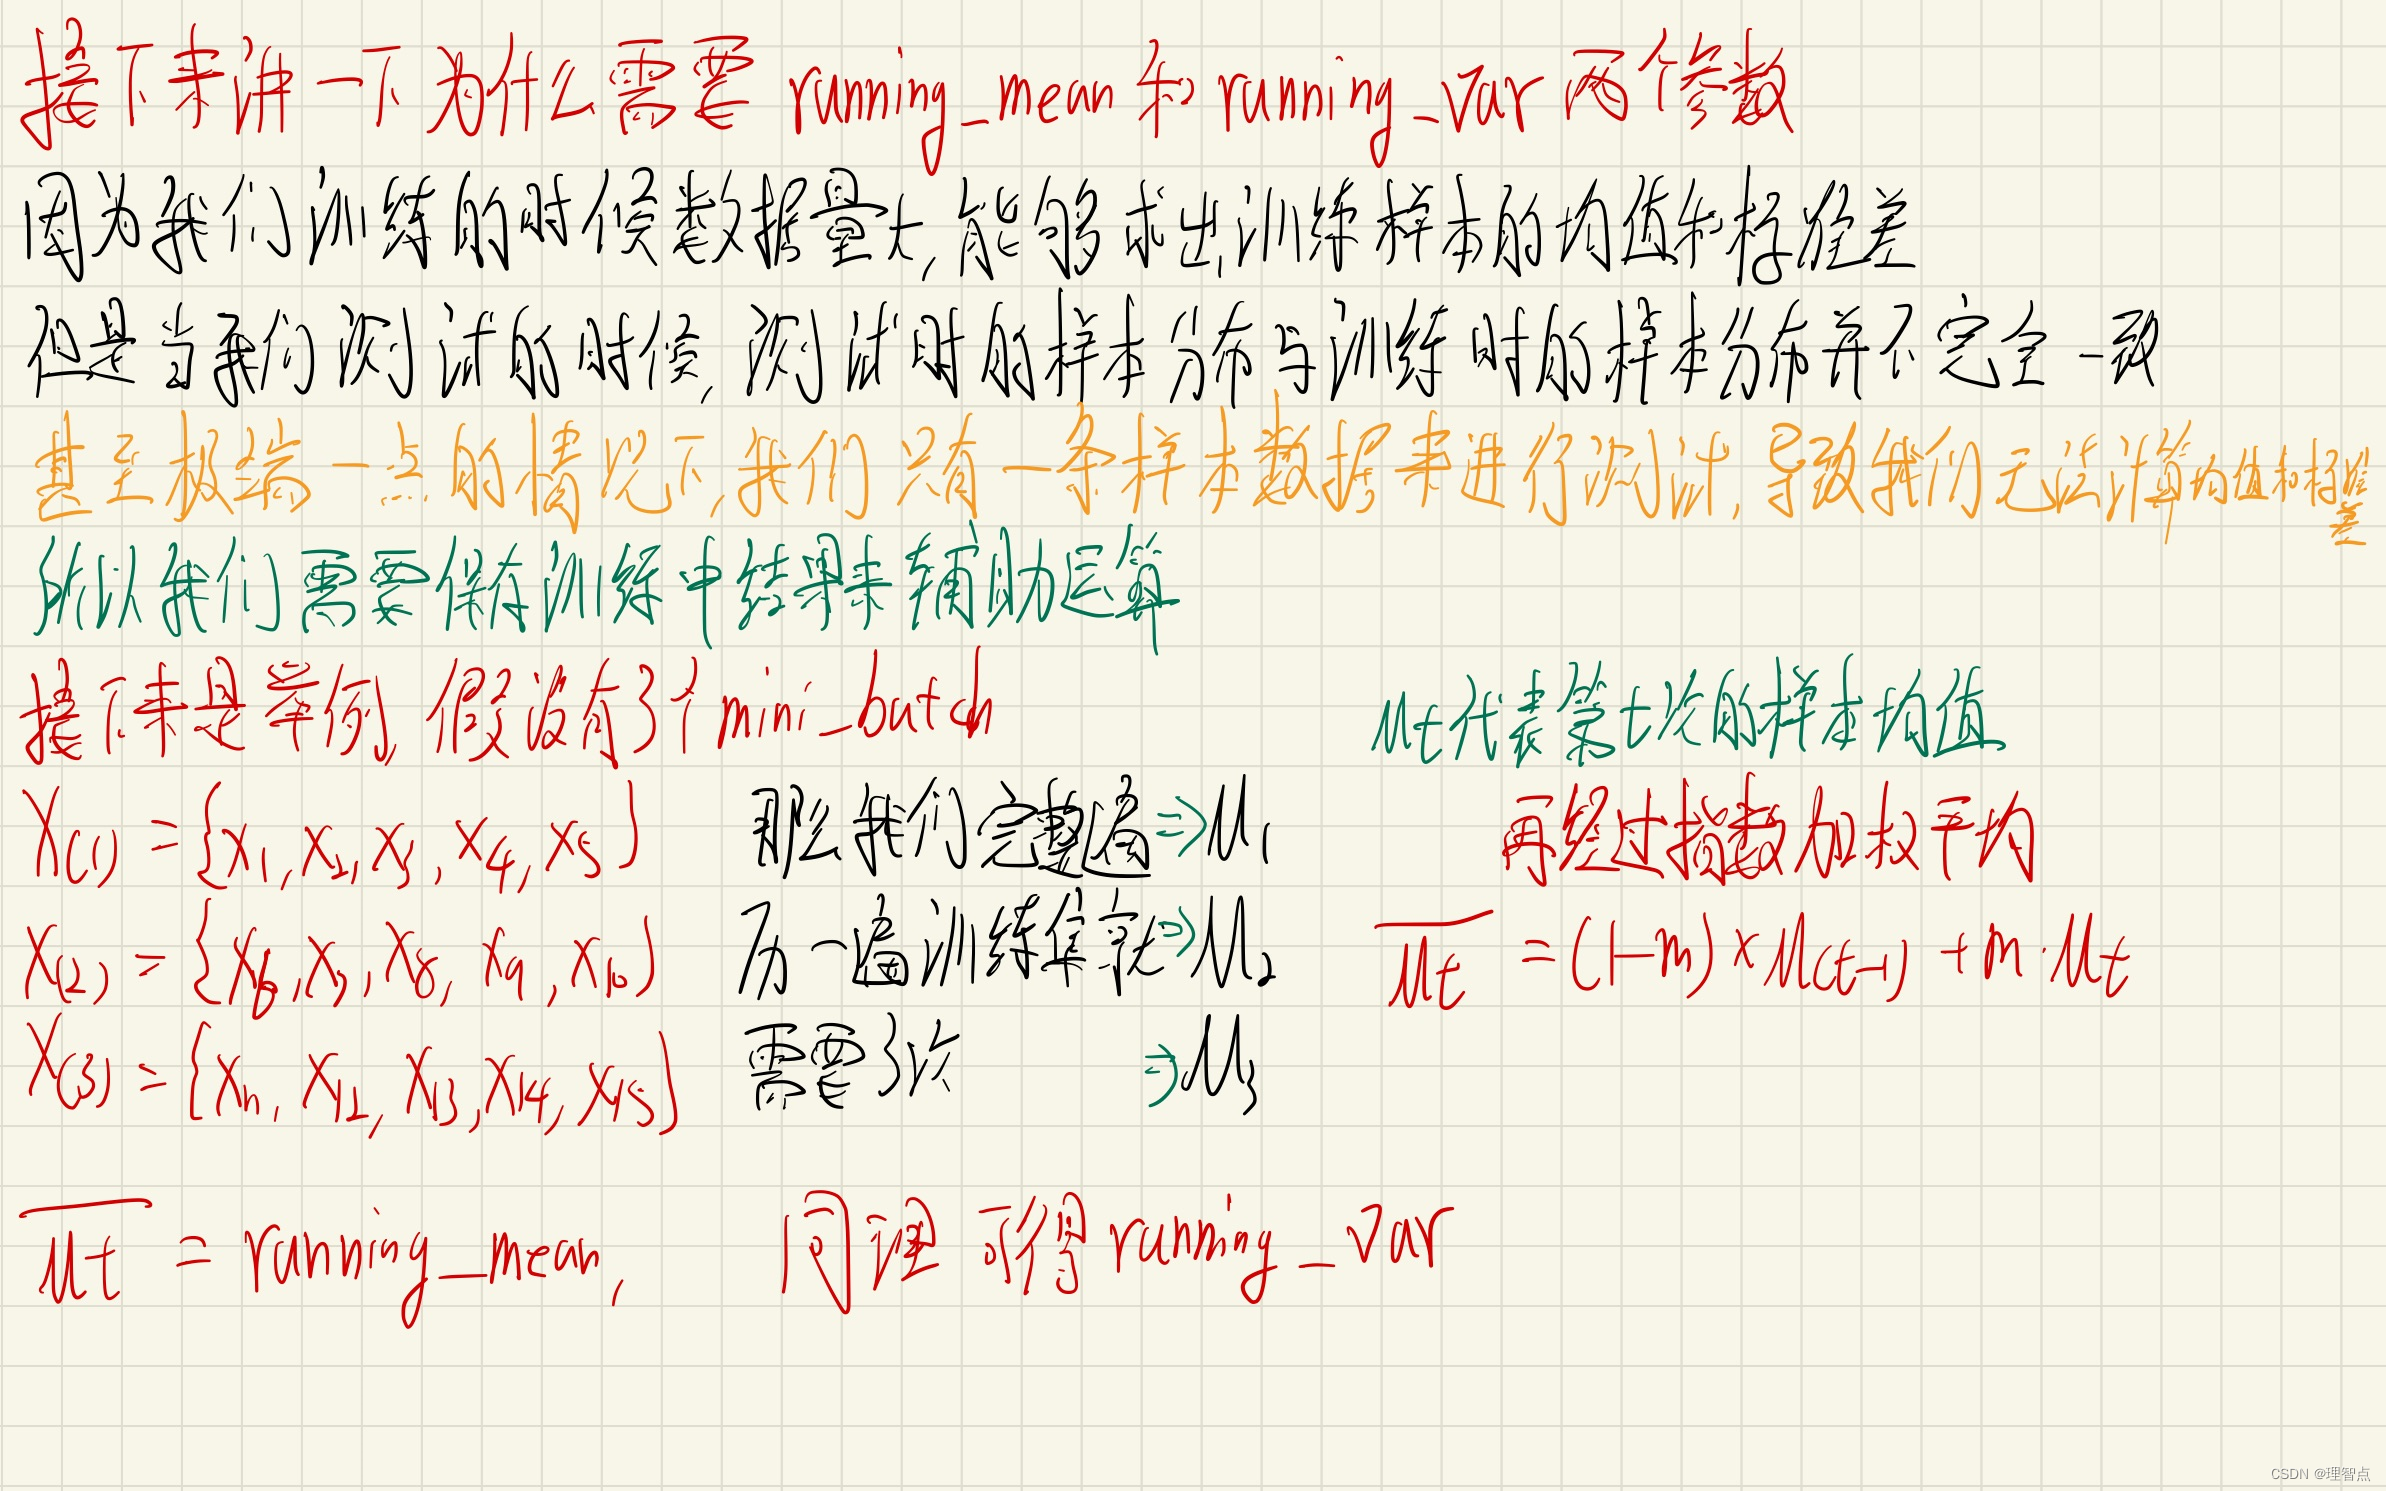 接下来讲一下为什么需要running_mean和running_var两个参数
因为我们训练的时候数据量大,能够求出训练样本的均值和标准差
但是当我们测试的时候,测试时的样本分布与训练时的样本分布并不完全一致
甚至极端一点的情况下,我们只有一条样本数据来进行测试,导致我们无法计算均值和标准差
所以我们需要保存训练中结果来辅助运算
接下来是举例,假设有3个mini_batch
μt代表第t次的样本均值
X(1) = {x1, x2, x3, x4, x5} 那么我们完整遍 => μ1 再经过指数加权平均
X(2) = {x6, x7, x8, x9, x10} 历一遍训练集就 => μ2 μt‾ = (1-m) × μ(t-1) + m · μt
X(3) = {x11, x12, x13, x14, x15} 需要3次 => μ3
μt‾ = running_mean, 同理可得running_var
CSDN @理智点